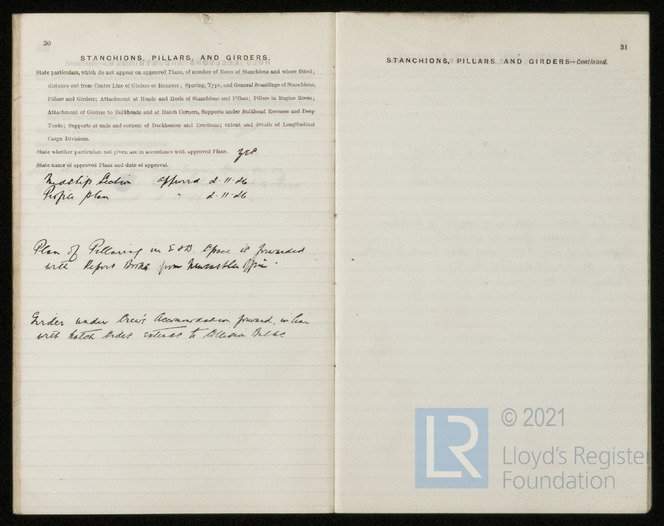 30
STANCHIONS, PILLARS, AND GIRDERS.
State particulars, which do not appear on approved Plans, of number of Rows of Stanchions and where fitted;
distance out from Centre Line of Girders or Runners; Spacing, Type, and General Scantlings of Stanchions,
Pillars and Girders; Attachment at Heads and Heels of Stanchions and Pillars; Pillars in Engine Room;
Attachment of Girders to Bulkheads and at Hatch Corners, Supports under Bulkhead Recesses and Deep
Tanks; Supports at ends and corners of Deckhouses and Erections; extent and details of Longitudinal
Cargo Divisions.
State whether particulars not given are in accordance with approved Plans. Yes
State name of approved Plans and date of approval.
Midship Section approved 2.11.26
Profile plan " 2.11.26
Plan of Pillaring in E & B Space is forwarded
with Report from Newcastle Office
Girder under Crew's Accommodation forward, in line
with hatch sides extends to Collision
31
STANCHIONS, PILLARS, AND GIRDERS—Continued.
LR
© 2021
Lloyd's Register
Foundation